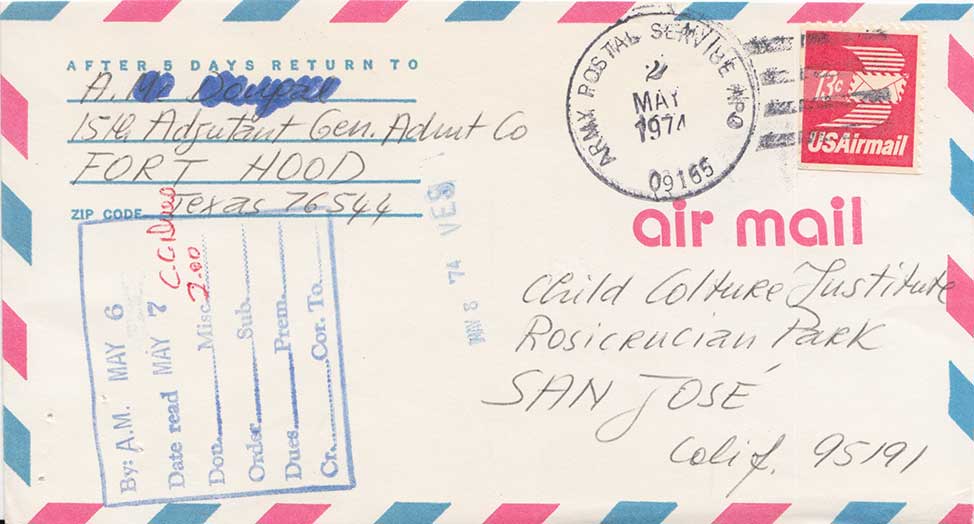 AFTER 5 DAYS RETURN TO
A.
151th Adjutant Gen. Admt Co
FORT HOOD
ZIP CODE Texas 76544
ARMY POSTAL SERVICE APO
2
MAY
1974
09166
13c
USAirmail
air mail
Child Colture Institute
Rosicrucian Park
SAN JOSÉ
Calif. 95191
MAY 8 '74 VES
By: A.M. MAY 6
Date read MAY 7
Don. Misc.
Order Sub.
Dues Prem.
Cr. Cor. To.
C.C. Dues
2.00